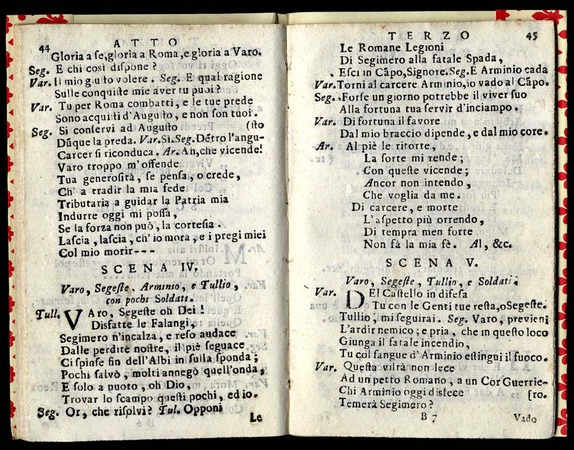 44 ATTO
Gloria a se, gloria a Roma, e gloria a Varo.
Seg. E chi così dispone?
Var. Il mio giusto volere. Seg. E qual ragione
Sulle conquiste mie aver tu puoi?
Var. Tu per Roma combatti, e le tue prede
Sono acquisti d'Augusto, e non son tuoi.
Seg. Si conservi ad Augusto (sto
Dũque la preda. Var. Sì. Seg. Dētro l'angu-
Carcer si riconduca. Ar. An, che vicende!
Varo troppo m'offende
Tua generosità, se pensa, o crede,
Ch' a tradir la mia fede
Tributaria a guidar la Patria mia
Indurre oggi mi possa,
Se la forza non può, la cortesia.
Lascia, lascia, ch' io mora, e i pregi miei
Col mio morir---
SCENA IV.
Varo, Segeste, Arminio, e Tullio,
con pochi Soldati.
Tull. VAro, Segeste oh Dei!
Disfatte le Falangi,
Segimero n'incalza, e reso audace
Dalle perdite nostre, il piè seguace
Ci spinse fin dell'Albi in sulla sponda;
Pochi salvò, molti annegò quell'onda,
E solo a nuoto, oh Dio,
Trovar lo scampo questi pochi, ed io.
Seg. Or, che risolvi? Tul. Opponi
Le
TERZO 45
Le Romane Legioni
Di Segimero alla fatale Spada,
Esci in Cãpo, Signore. Seg. E Arminio cada
Var. Torni al carcere Arminio, io vado al Cãpo.
Seg. Forse un giorno potrebbe il viver suo
Alla fortuna tua servir d'inciampo.
Var. Di fortuna il favore
Dal mio braccio dipende, e dal mio core.
Ar. Al piè le ritorte,
La sorte mi rende;
Con queste vicende;
Ancor non intendo,
Che voglia da me.
Di carcere, e morte
L'aspetto più orrendo,
Di tempra men forte
Non fà la mia fè. Al, &c.
SCENA V.
Varo, Segeste, Tullio, e Soldati.
Var. DEl Castello in difesa
Tu con le Genti tue resta, o Segeste.
Tullio, mi seguirai. Seg. Varo, previeni
L'ardir nemico; e pria, che in questo loco
Giunga il fatale incendio,
Tu col sangue d'Arminio estingui il fuoco.
Var. Questa viltà non lece
Ad un petto Romano, a un Cor Guerrie-
Chi Arminio oggi disfece [ro.
Temerà Segimero?
B 7 Vado